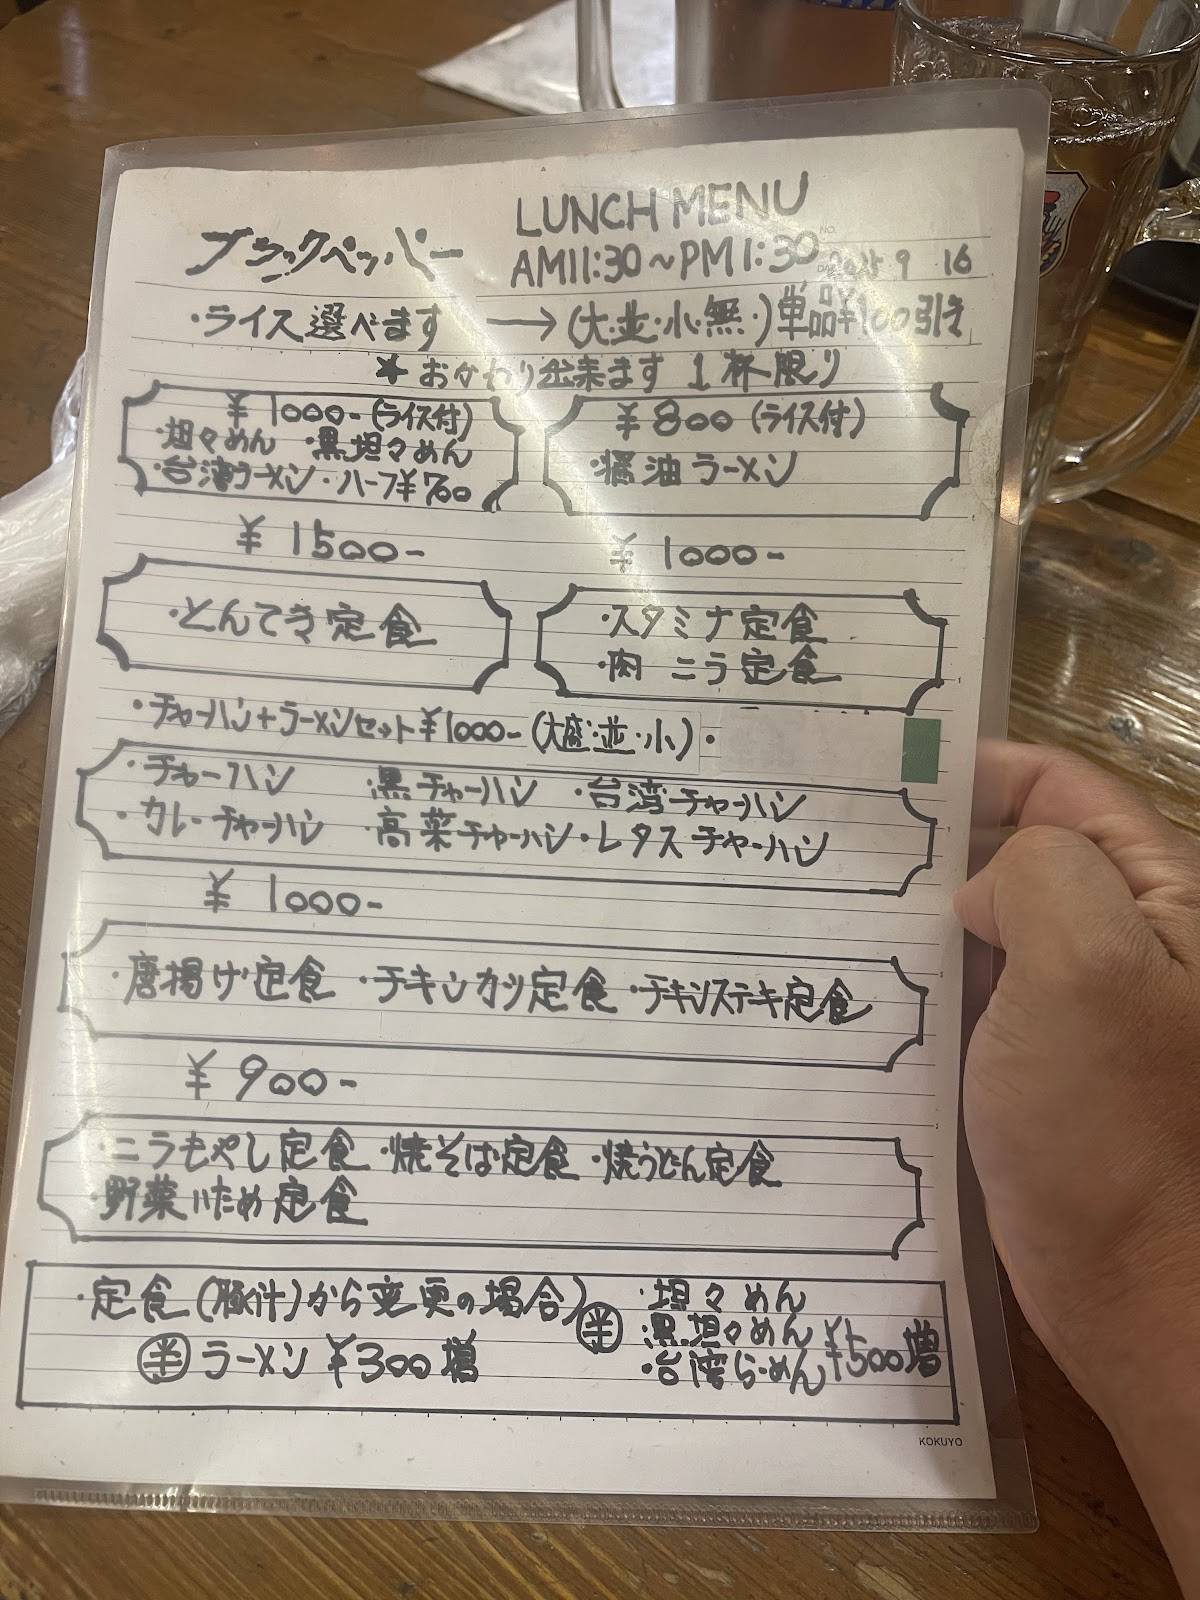 LUNCH MENU
ブラックペッパー
AM11:30～PM1:30
NO.
2025 9 16
・ライス選べます → (大・並・小・無・)単品¥100引き
★おかわり出来ます 1杯限り
¥1000-(ライス付)
・坦々めん ・黒坦々めん
・台湾ラーメン・ハーフ¥700
¥800(ライス付)
・醤油ラーメン
¥1500-
・とんてき定食
¥1000-
・スタミナ定食
・肉ニラ定食
・チャーハン+ラーメンセット¥1000-(大盛・並・小)・
・チャーハン 黒チャーハン ・台湾チャーハン
・カレーチャーハン ・高菜チャーハン・レタスチャーハン
¥1000-
・唐揚げ定食 ・チキンカツ定食 ・チキンステーキ定食
¥900-
・ニラもやし定食 ・焼そば定食 ・焼うどん定食
・野菜いため定食
・定食(豚汁)から変更の場合)
㊥ラーメン ¥300増